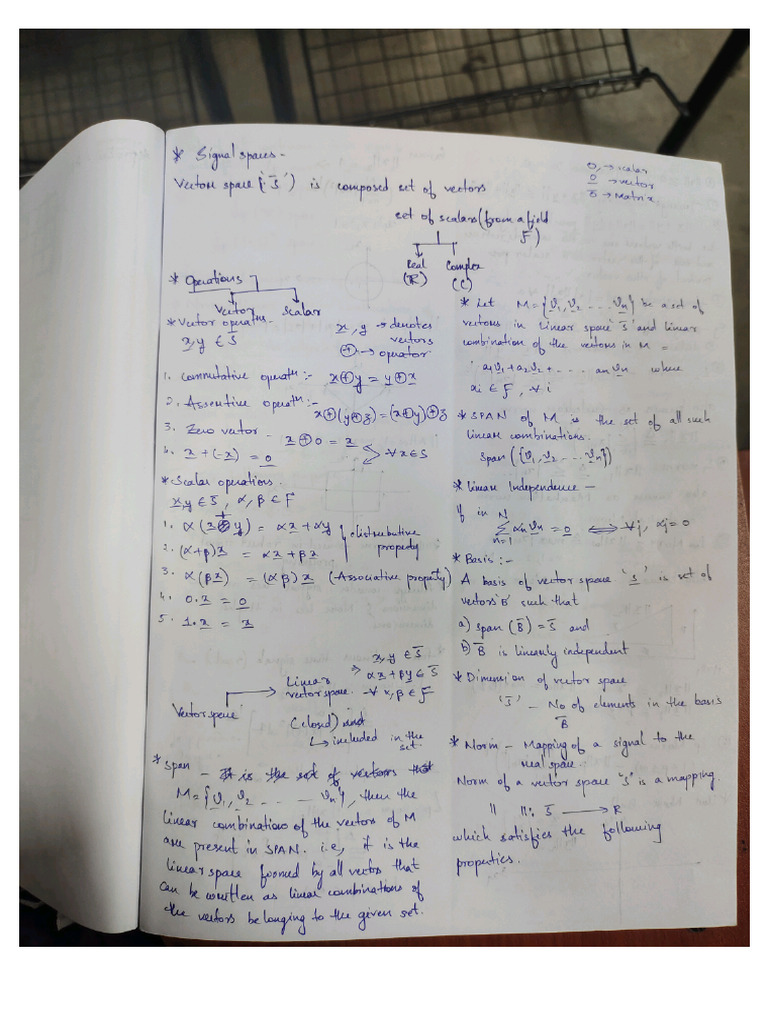 * Signal spaces -
0, → scalar
0̲ → vector
0̄ → Matrix
Vector space ('S̄') is composed set of vectors
set of scalars (from a field F̄)
Real (R) Complex (C)
* Operations
Vector Scalar
* Vector operatn -
x̲, y̲ ∈ S̄
x̲, y̲ → denotes vectors
⊕ → operator
1. Commutative operatn :- x̲ ⊕ y̲ = y̲ ⊕ x̲
2. Assertive operatn :-
x̲ ⊕ (y̲ ⊕ z̲) = (x̲ ⊕ y̲) ⊕ z̲
3. Zero vector - x̲ ⊕ 0 = x̲
4. x̲ + (-x̲) = 0̲ > ∀ x ∈ S
* Scalar operations.
x̲, y̲ ∈ S̄, α, β ∈ F̄
1. α (x̲ + y̲) = αx̲ + αy̲ } distributive
2. (α+β)x̲ = αx̲ + βx̲ property
3. α(βx̲) = (αβ)x̲ (-Associative property)
4. 0.x̲ = 0̲
5. 1.x̲ = x̲
x̲, y̲ ∈ S̄
Linear ⇒ αx̲ + βy̲ ∈ S̄
vector space. ∀ α, β ∈ F̄
Vector space
(closed) and
↳ included in the
set.
* Span - It is the set of vectors that
M = {v̲1, v̲2 - - - - v̲n}, then the
linear combinations of the vectors of M
are present in SPAN. i.e, it is the
linear space formed by all vectors that
can be written as linear combinations of
the vectors belonging to the given set.
* Let M = {v̲1, v̲2 ... v̲n} be a set of
vectors, in linear space 'S̄' and linear
combination of the vectors in M =
a1v̲1 + a2v̲2 + .... anv̲n where
ai ∈ F, ∀ i
* SPAN of M is the set of all such
linear combinations.
Span ({v̲1, v̲2 ... v̲n})
* Linear Independence -
If in Σ(n=1 to N) αn v̲n = 0̲ ⟺ ∀j, αj = 0
* Basis :-
A basis of vector space 's̄' is set of
vectors 'B' such that
a) span (B̄) = S̄ and
b) B̄ is linearly independent
* Dimension of vector space
'S̄' - No of elements in the basis
B̄
* Norm - Mapping of a signal to the
real space.
Norm of a vector space 'S̄' is a mapping.
|| ||: S̄ ⟶ R
which satisfies the following
properties.